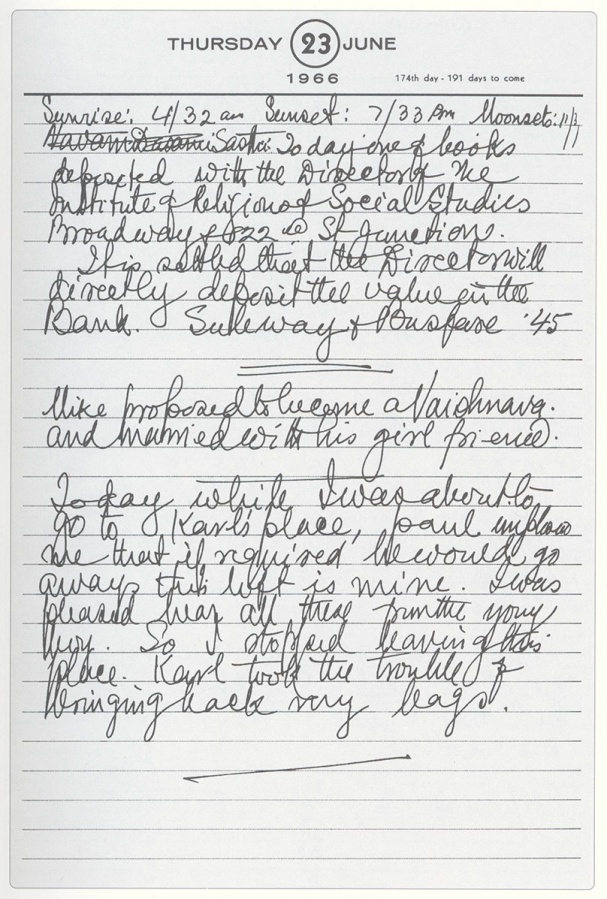 THURSDAY 23 JUNE
1966 174th day - 191 days to come
Sunrise: 4/32 am Sunset: 7/33 Pm Moonset: 11/
Today one of books
deposited with the Director of the
Institute of Religion of Social Studies
Broadway & 122 St Junction.
It is settled that the Director will
directly deposit the value in the
Bank. Subway & Busfare '45
Mike proposed to become a Vaishnava.
and married with his girl friend.
Today while I was about to
go to Karl's place, paul
me that if required he would go
away, this loft is mine. I was
pleased hear all these the young
boy. So I stopped leaving this
place. Karl took the trouble of
bringing back my bags.